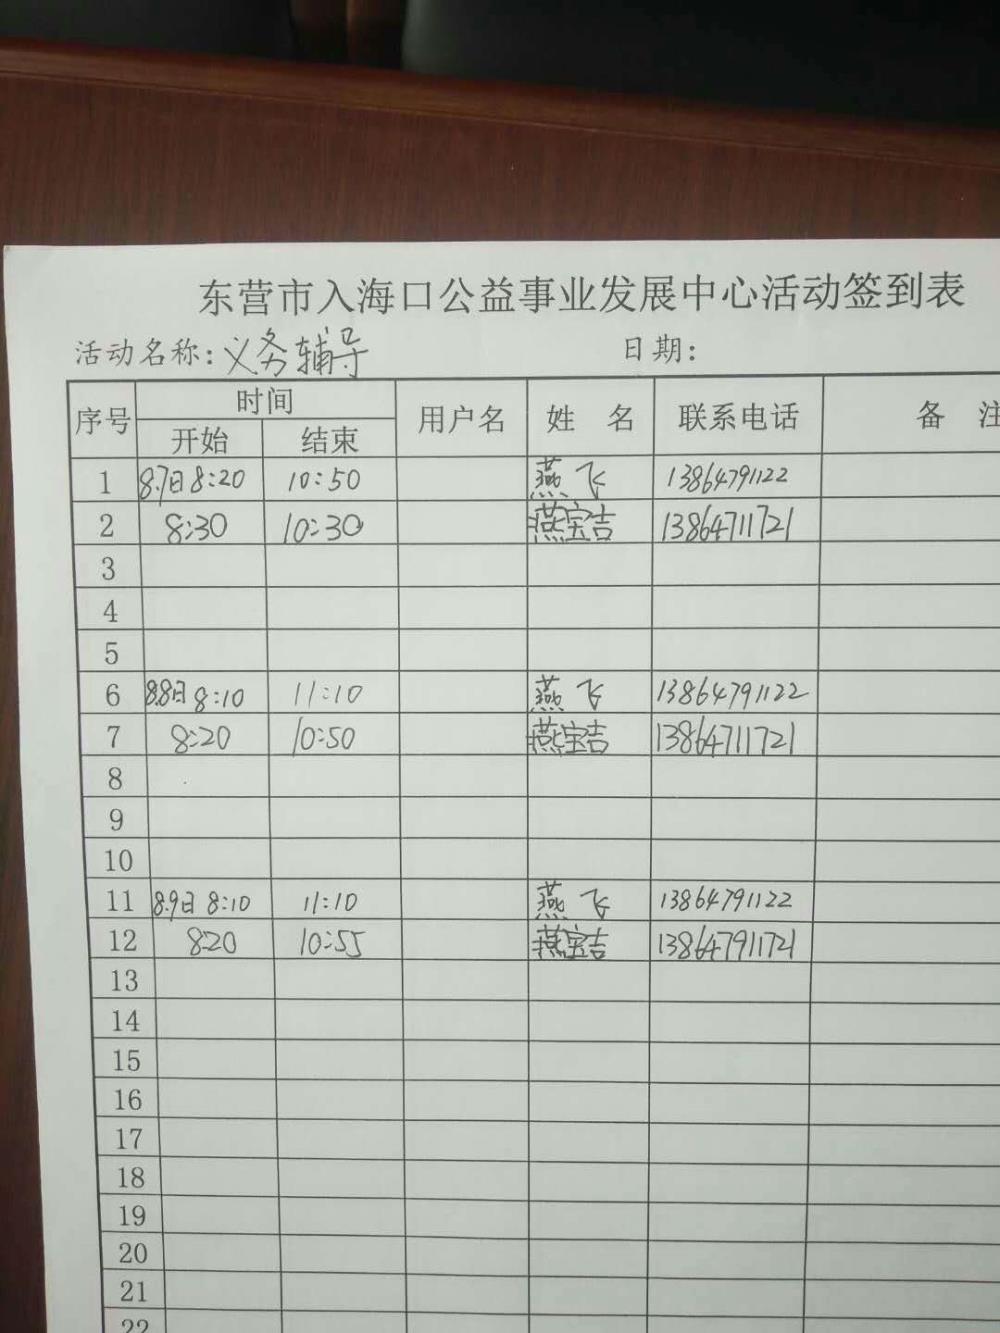 东营市入海口公益事业发展中心活动签到表
活动名称:义务辅导 日期:
序号 时间 用户名 姓 名 联系电话 备 注
开始 结束
1 8.7日 8:20 10:50 燕飞 13864791122
2 8:30 10:30 燕宝吉 13864711721
3
4
5
6 8.8日 8:10 11:10 燕飞 13864791122
7 8:20 10:50 燕宝吉 13864711721
8
9
10
11 8.9日 8:10 11:10 燕飞 13864791122
12 820 10:55 燕宝吉 138647911721
13
14
15
16
17
18
19
20
21
22